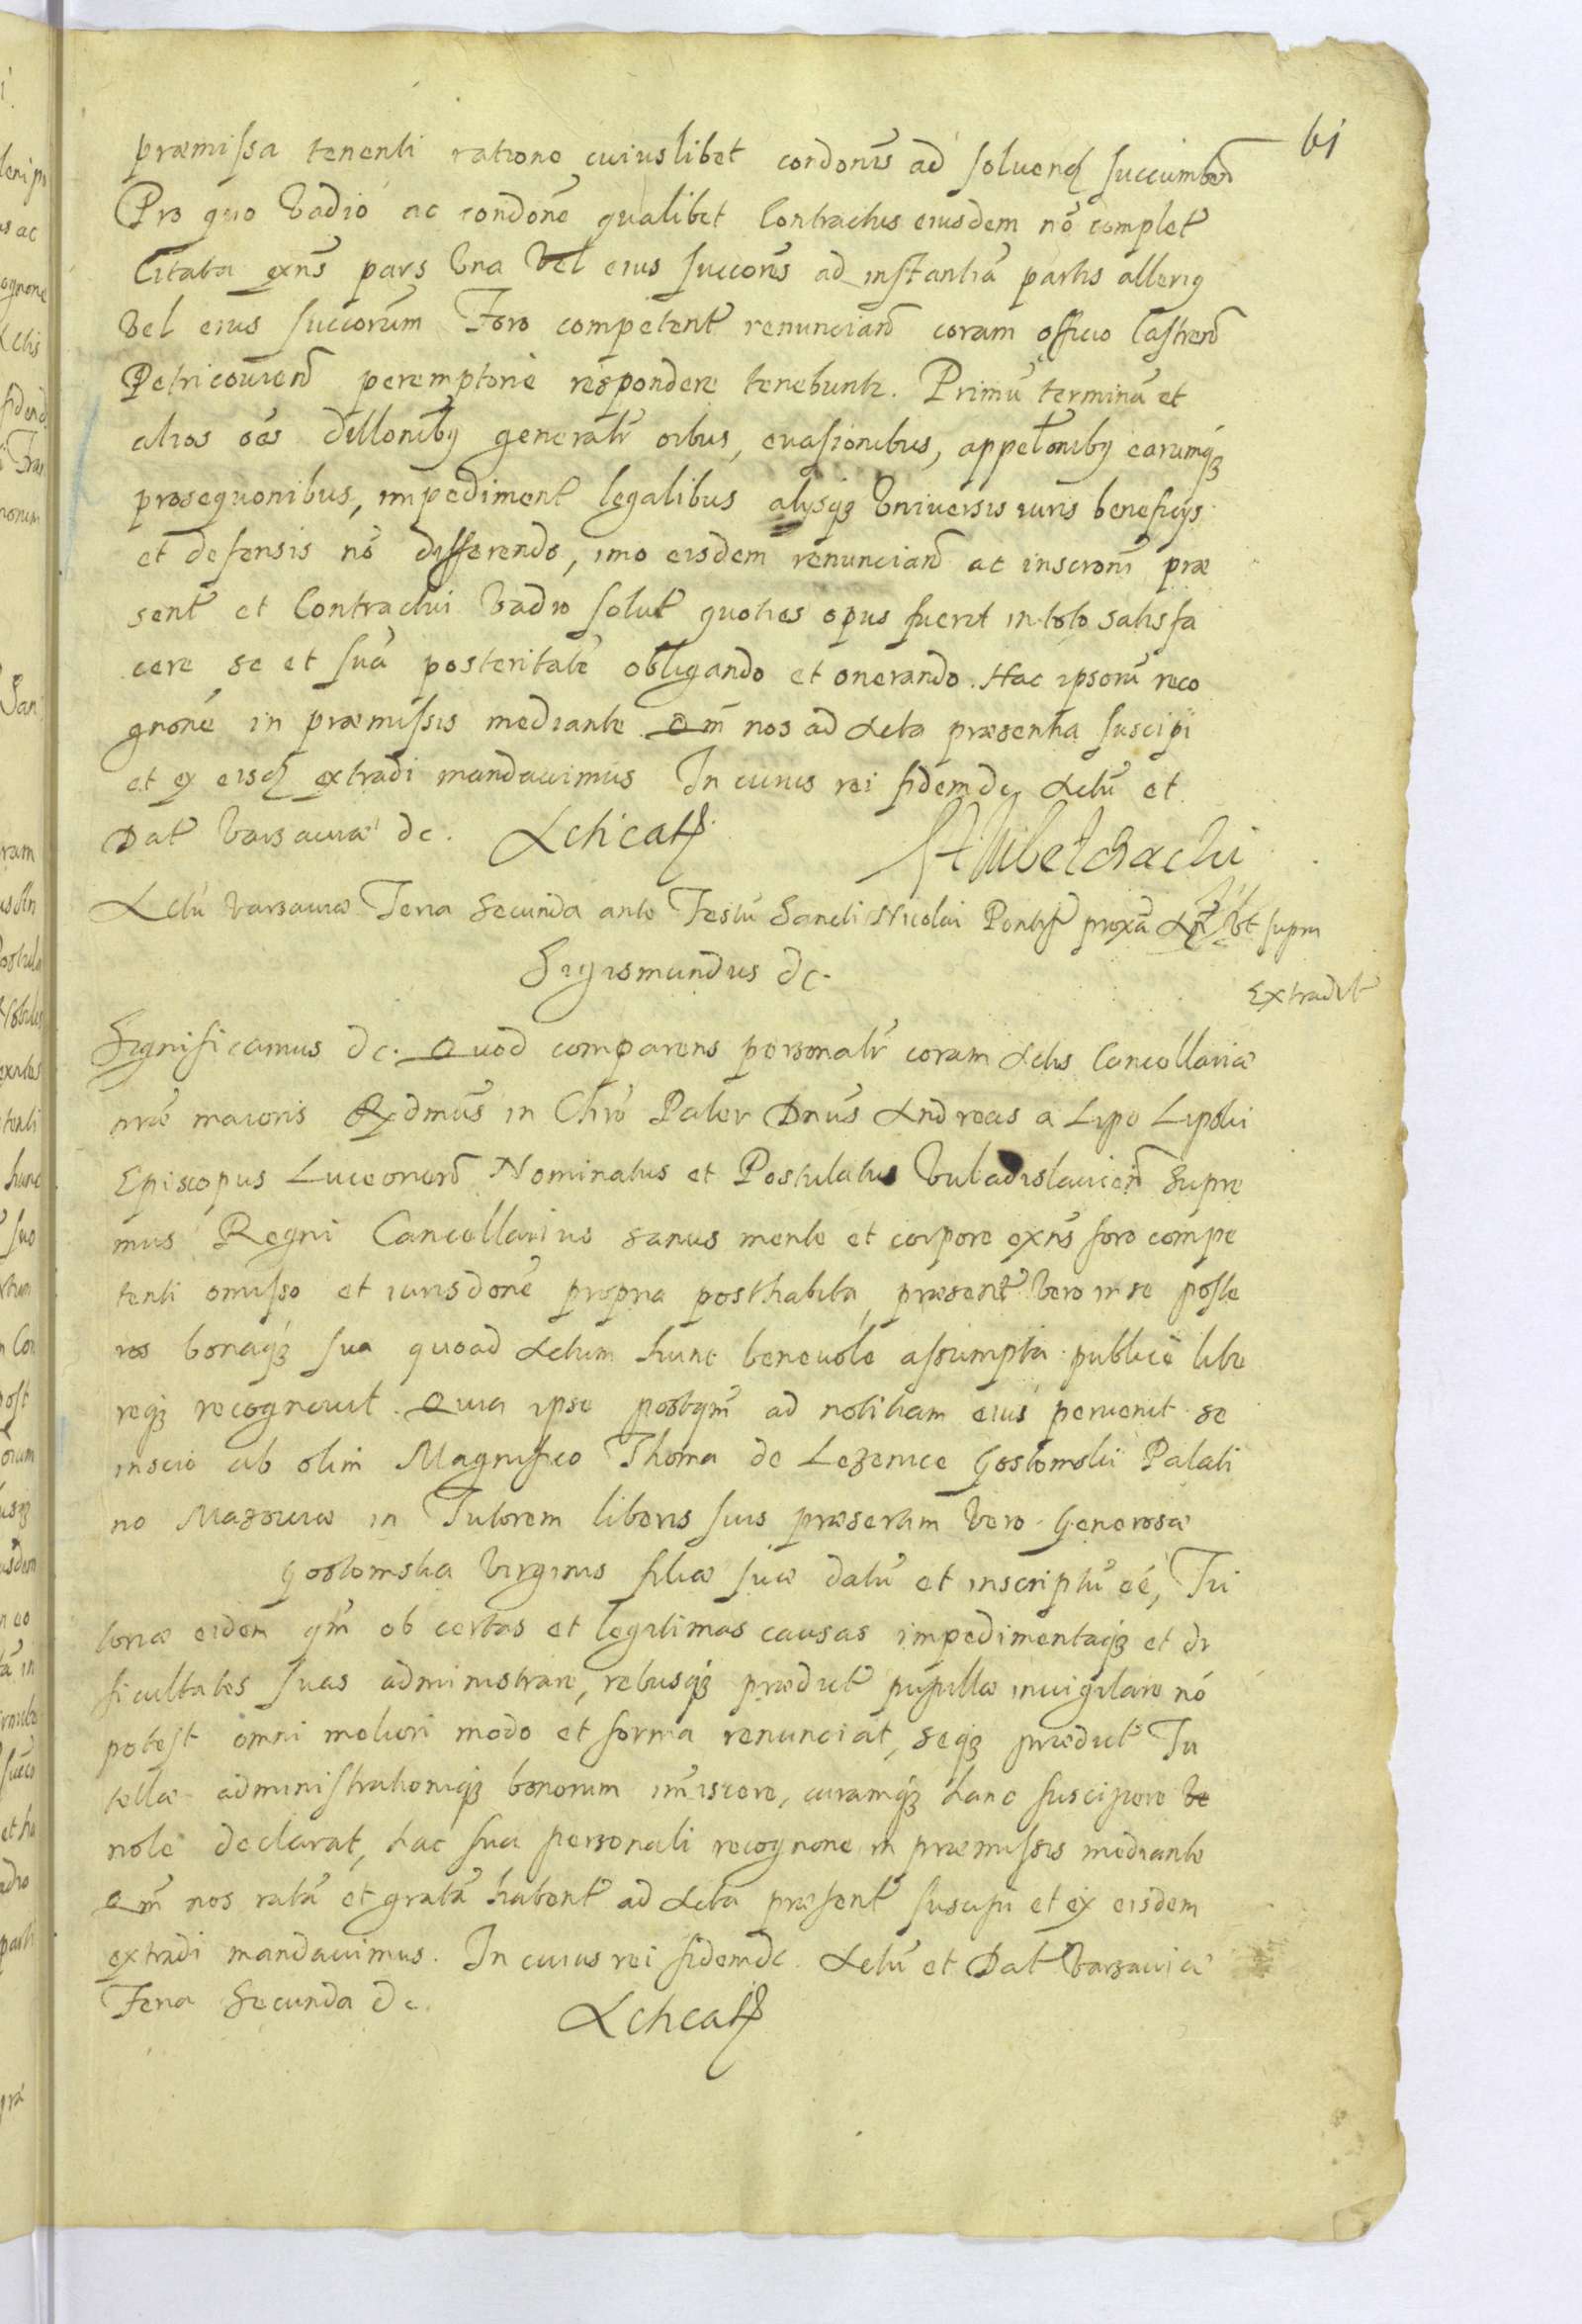 61
præmissa tenenti ratione cuiuslibet condonis ad soluend succumbend
Pro quo Vadio ac condone qualibet Contractus eiusdem nō complet
Citata exns pars Vna Vel eius succores ad instantiā partis alterig
Vel eius succorum Foro competent renunciand coram officio Castrend
Petricouiend peremptoriè respondere tenebuntr. Primū terminū et
alios oēs dillonibg generalr oibus, euasionibus, appellonibg earumqз
prosequonibus, impediment legalibus alysqз Vniuersis iuris beneficys
et defensis nō differendo, imo eisdem renunciand ac inscroni præ
sent et Contractui Vadio solut quoties opus fuerit in toto satisfa
cere se et suā posteritatē obligando et onerando. Hac ipsorū reco
gnone in præmissis mediante. Qm nos ad Acta præsentia suscipi
et ex eisd extradi mandauimus In cuius rei fidem &c Actū et
Dat Varsauiæ &c.
Actū Varsauiæ Feria Secunda ante Festū Sancti Nicolai Pontif proxa Ao Vt supra
Sigismundus &c.
Extradit
Significamus &c. Quod comparens personalr coram Actis Cancellariæ
nræ maioris Rxdmus in Chrō Pater Dnus Andreas a Lipe Lipski
Episcopus Luceoriend Nominatus et Postulatus Vuladislauiend Supre
mus Regni Cancellarius sanus mente et corpore exns foro compe
tenti omisso et iurisdone propria posthabita, præsent Vero in se poste
ros bonaqз sua quoad Actum hunc beneuole assumpta publicè libe
reqз recognouit. Quia ipse postqm ad notitiam eius peruenit se
inscio ab olim Magnifico Thoma de Lezenice Gostomski Palati
no Mazouiæ in Tutorem liberis suis præsertim Vero Generosæ
Gostomska Virginis filiæ suæ datū et inscriptū eē, Tu
toriæ eidem qm ob certas et legitimas causas impedimentaqз et di
ficultates suas administrare, rebusqз prædict pupillæ inuigilare nō
potest omni meliori modo et forma renunciat, seqз prædict Tu
tellæ administrationiqз bonorum imiscere, curamqз hanc suscipere Ve
nolle declarat, hac sua personali recognone in præmissis mediante
Qm nos ratā et gratā habent ad Acta præsent suscipi et ex eisdem
extradi mandauimus. In cuius rei fidem &c. Actū et Dat Varsauiæ
Feria Secunda &c.